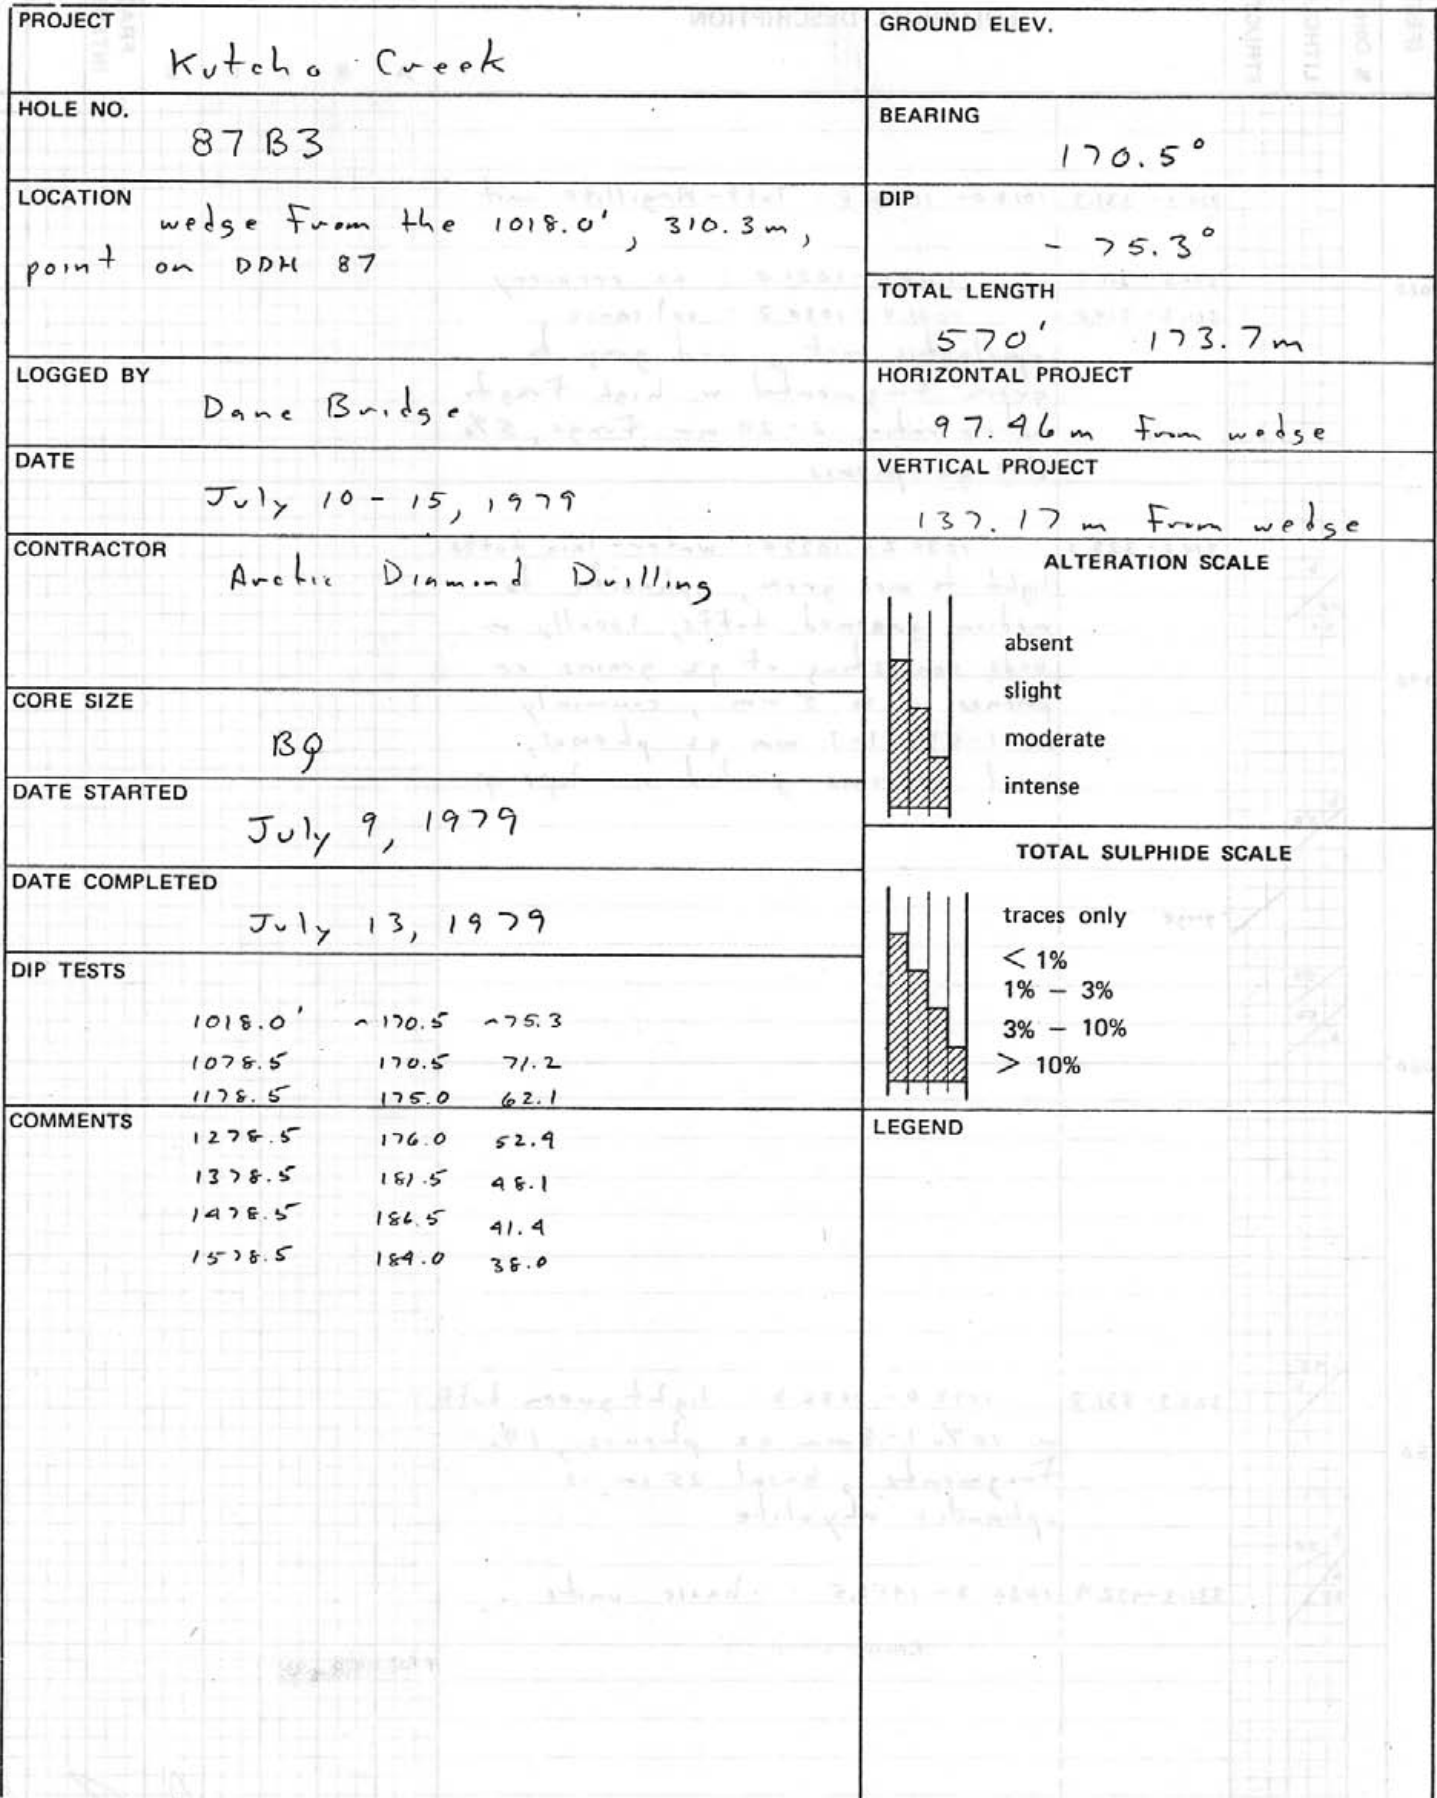 PROJECT
Kutcho Creek
HOLE NO.
87 B3
LOCATION
wedge From the 1018.0', 310.3 m,
point on DDH 87
LOGGED BY
Dane Bridge
DATE
July 10 - 15, 1979
CONTRACTOR
Arctic Diamond Drilling
CORE SIZE
BQ
DATE STARTED
July 9, 1979
DATE COMPLETED
July 13, 1979
DIP TESTS
1018.0' ~170.5 ~75.3
1078.5 170.5 71.2
1178.5 175.0 62.1
COMMENTS
1278.5 176.0 52.9
1378.5 181.5 48.1
1478.5 186.5 41.4
1578.5 184.0 38.0
GROUND ELEV.
BEARING
170.5°
DIP
- 75.3°
TOTAL LENGTH
570' 173.7 m
HORIZONTAL PROJECT
97.46 m From wedge
VERTICAL PROJECT
137.17 m From wedge
ALTERATION SCALE
absent
slight
moderate
intense
TOTAL SULPHIDE SCALE
traces only
< 1%
1% – 3%
3% – 10%
> 10%
LEGEND